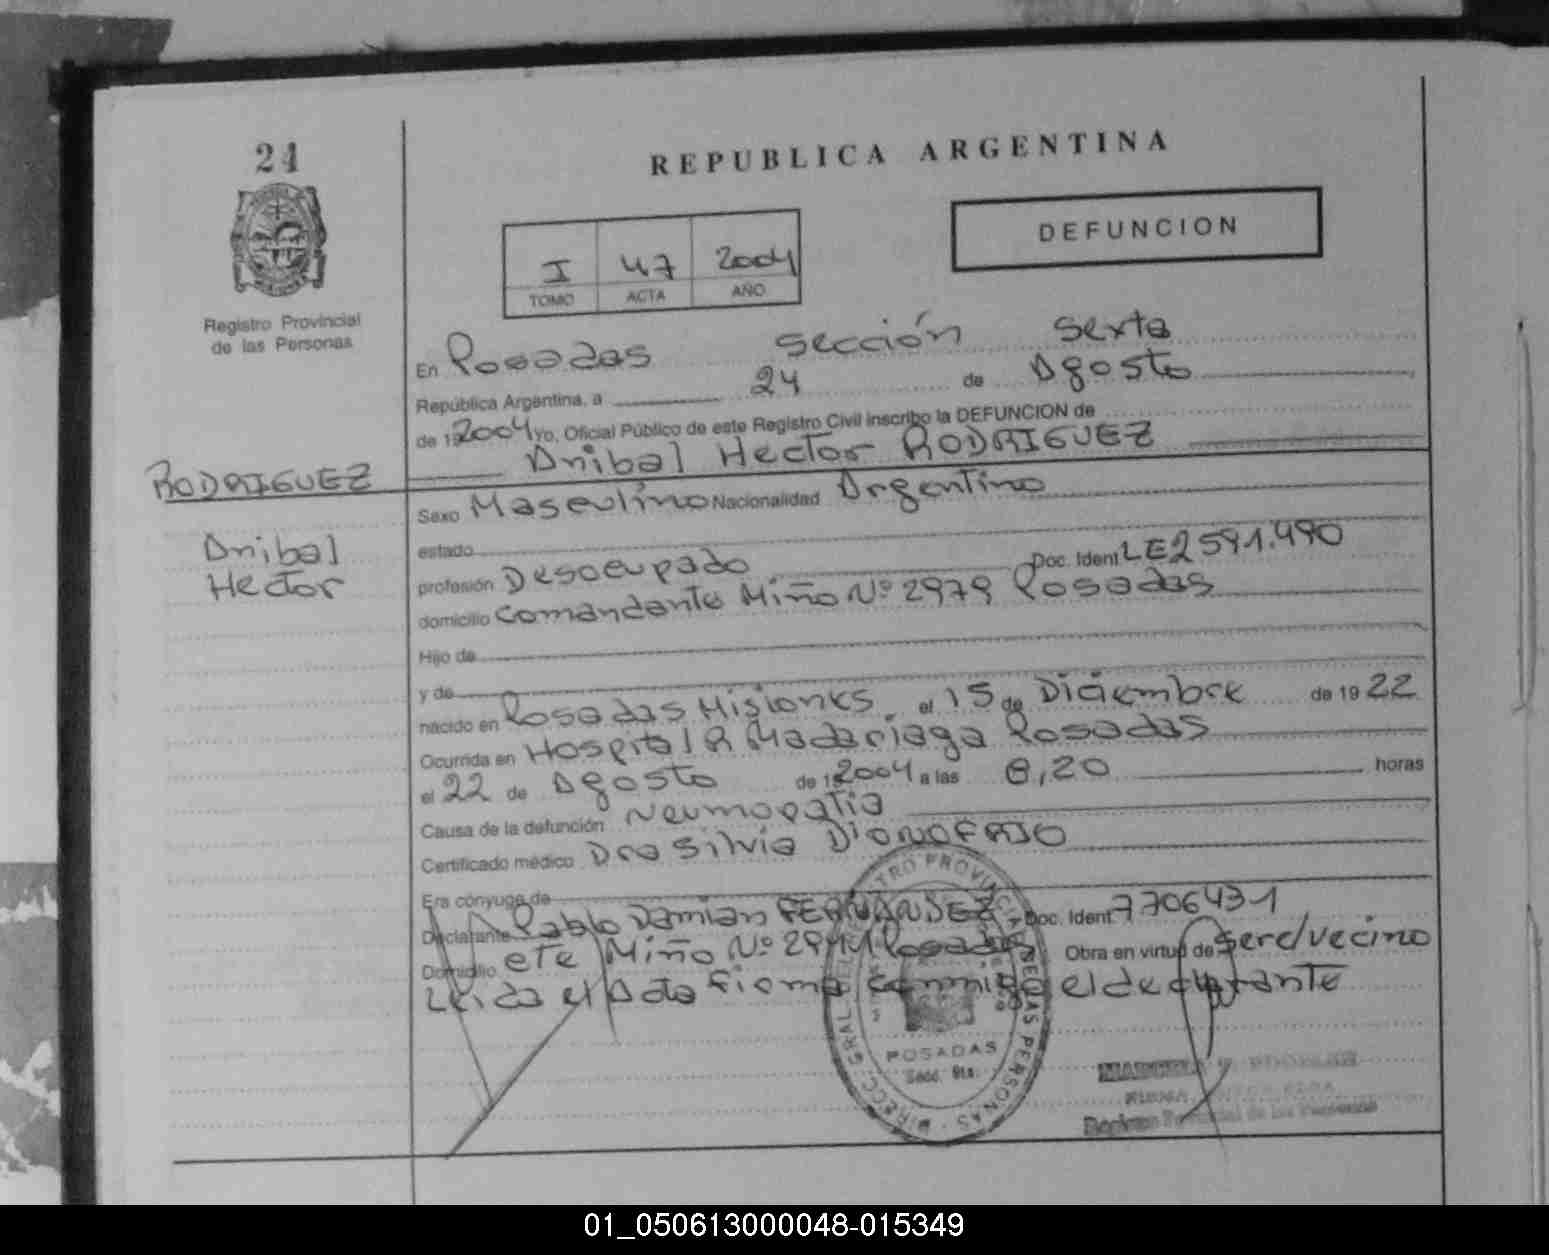 24
Registro Provincial
de las Personas
REPUBLICA ARGENTINA
DEFUNCION
I 47 2004
TOMO ACTA AÑO
En Posadas sección sexta
República Argentina, a 24 de Agosto
de 1 2004 yo, Oficial Público de este Registro Civil inscribo la DEFUNCION de
Anibal Hector RODRIGUEZ
RODRIGUEZ
Anibal
Hector
Sexo Masculino Nacionalidad Argentino
estado
profesión Desocupado Doc. Ident LE2591.490
domicilio Comandante Miño Nº 2979 Posadas
Hijo de
y de
nacido en Posadas Misiones el 15 de Diciembre de 19 22
Ocurrida en Hospital R Madariaga Posadas
el 22 de Agosto de 1 2004 a las 8,20 horas
Causa de la defunción Neumopatia
Certificado médico Dra Silvia DIONOFRIO
Era cónyuge de
Declarante Pablo Damian FERNANDEZ Doc. Ident 7706431
Domicilio cte Miño Nº Posadas Obra en virtud de ser c/vecino
Leida el Acta firma conmigo el declarante
POSADAS
Secc. 6ta.
Registro Provincial de las Personas
01_050613000048-015349